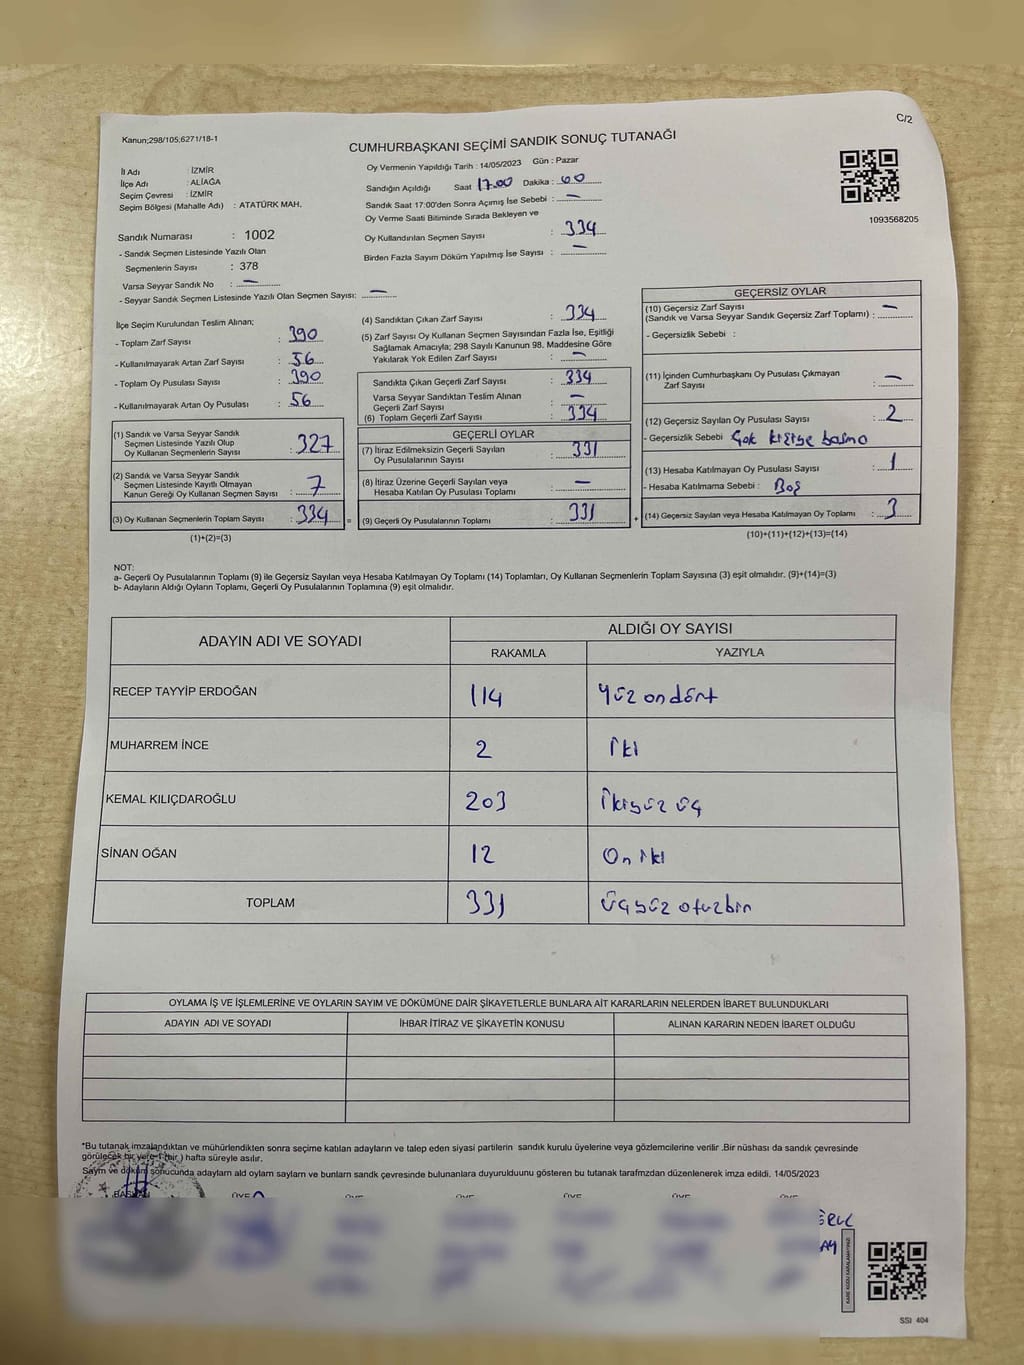 C/2
Kanun;298/105;6271/18-1
CUMHURBAŞKANI SEÇİMİ SANDIK SONUÇ TUTANAĞI
İl Adı : İZMİR
İlçe Adı : ALİAĞA
Seçim Çevresi : İZMİR
Seçim Bölgesi (Mahalle Adı) : ATATÜRK MAH.
Sandık Numarası : 1002
- Sandık Seçmen Listesinde Yazılı Olan
Seçmenlerin Sayısı : 378
Varsa Seyyar Sandık No : —
- Seyyar Sandık Seçmen Listesinde Yazılı Olan Seçmen Sayısı: —
Oy Vermenin Yapıldığı Tarih : 14/05/2023 Gün : Pazar
Sandığın Açıldığı Saat 17.00 Dakika : 00
Sandık Saat 17:00'den Sonra Açımış İse Sebebi : —
Oy Verme Saati Bitiminde Sırada Bekleyen ve
Oy Kullandırılan Seçmen Sayısı : 334
Birden Fazla Sayım Döküm Yapılmış İse Sayısı : —
1093568205
İlçe Seçim Kurulundan Teslim Alınan;
- Toplam Zarf Sayısı : 390
- Kullanılmayarak Artan Zarf Sayısı : 56
- Toplam Oy Pusulası Sayısı : 390
- Kullanılmayarak Artan Oy Pusulası : 56
(1) Sandık ve Varsa Seyyar Sandık
Seçmen Listesinde Yazılı Olup
Oy Kullanan Seçmenlerin Sayısı : 327
(2) Sandık ve Varsa Seyyar Sandık
Seçmen Listesinde Kayıtlı Olmayan
Kanun Gereği Oy Kullanan Seçmen Sayısı : 7
(3) Oy Kullanan Seçmenlerin Toplam Sayısı : 334 =
(1)+(2)=(3)
(4) Sandıktan Çıkan Zarf Sayısı : 334
(5) Zarf Sayısı Oy Kullanan Seçmen Sayısından Fazla İse, Eşitliği
Sağlamak Amacıyla; 298 Sayılı Kanunun 98. Maddesine Göre
Yakılarak Yok Edilen Zarf Sayısı : —
Sandıkta Çıkan Geçerli Zarf Sayısı : 334
Varsa Seyyar Sandıktan Teslim Alınan
Geçerli Zarf Sayısı : —
(6) Toplam Geçerli Zarf Sayısı : 334
GEÇERLİ OYLAR
(7) İtiraz Edilmeksizin Geçerli Sayılan
Oy Pusulalarının Sayısı : 331
(8) İtiraz Üzerine Geçerli Sayılan veya
Hesaba Katılan Oy Pusulası Toplamı : —
(9) Geçerli Oy Pusulalarının Toplamı : 331 +
GEÇERSİZ OYLAR
(10) Geçersiz Zarf Sayısı
(Sandık ve Varsa Seyyar Sandık Geçersiz Zarf Toplamı) : —
- Geçersizlik Sebebi :
(11) İçinden Cumhurbaşkanı Oy Pusulası Çıkmayan
Zarf Sayısı : —
(12) Geçersiz Sayılan Oy Pusulası Sayısı : 2
- Geçersizlik Sebebi Çok kişiye basma
(13) Hesaba Katılmayan Oy Pusulası Sayısı : 1
- Hesaba Katılmama Sebebi : Boş
(14) Geçersiz Sayılan veya Hesaba Katılmayan Oy Toplamı : 3
(10)+(11)+(12)+(13)=(14)
NOT:
a- Geçerli Oy Pusulalarının Toplamı (9) ile Geçersiz Sayılan veya Hesaba Katılmayan Oy Toplamı (14) Toplamları, Oy Kullanan Seçmenlerin Toplam Sayısına (3) eşit olmalıdır. (9)+(14)=(3)
b- Adayların Aldığı Oyların Toplamı, Geçerli Oy Pusulalarının Toplamına (9) eşit olmalıdır.
ADAYIN ADI VE SOYADI ALDIĞI OY SAYISI
RAKAMLA YAZIYLA
RECEP TAYYİP ERDOĞAN 114 Yüz ondört
MUHARREM İNCE 2 İki
KEMAL KILIÇDAROĞLU 203 İkiyüz üç
SİNAN OĞAN 12 On iki
TOPLAM 331 Üçyüz otuzbir
OYLAMA İŞ VE İŞLEMLERİNE VE OYLARIN SAYIM VE DÖKÜMÜNE DAİR ŞİKAYETLERLE BUNLARA AİT KARARLARIN NELERDEN İBARET BULUNDUKLARI
ADAYIN ADI VE SOYADI İHBAR İTİRAZ VE ŞİKAYETİN KONUSU ALINAN KARARIN NEDEN İBARET OLDUĞU
*Bu tutanak imzalandıktan ve mühürlendikten sonra seçime katılan adayların ve talep eden siyasi partilerin sandık kurulu üyelerine veya gözlemcilerine verilir .Bir nüshası da sandık çevresinde
görülecek bir yere 1 (bir ) hafta süreyle asılır.
Sayım ve döküm sonucunda adayların ald oyların sayların ve bunların sandk çevresinde bulunanlara duyurulduunu gösteren bu tutanak tarafmzdan düzenlenerek imza edildi. 14/05/2023
BAŞKAN ÜYE ÜYE ÜYE ÜYE ÜYE ÜYE
KARE KODU KARALAMAYINIZ!
SSI 404